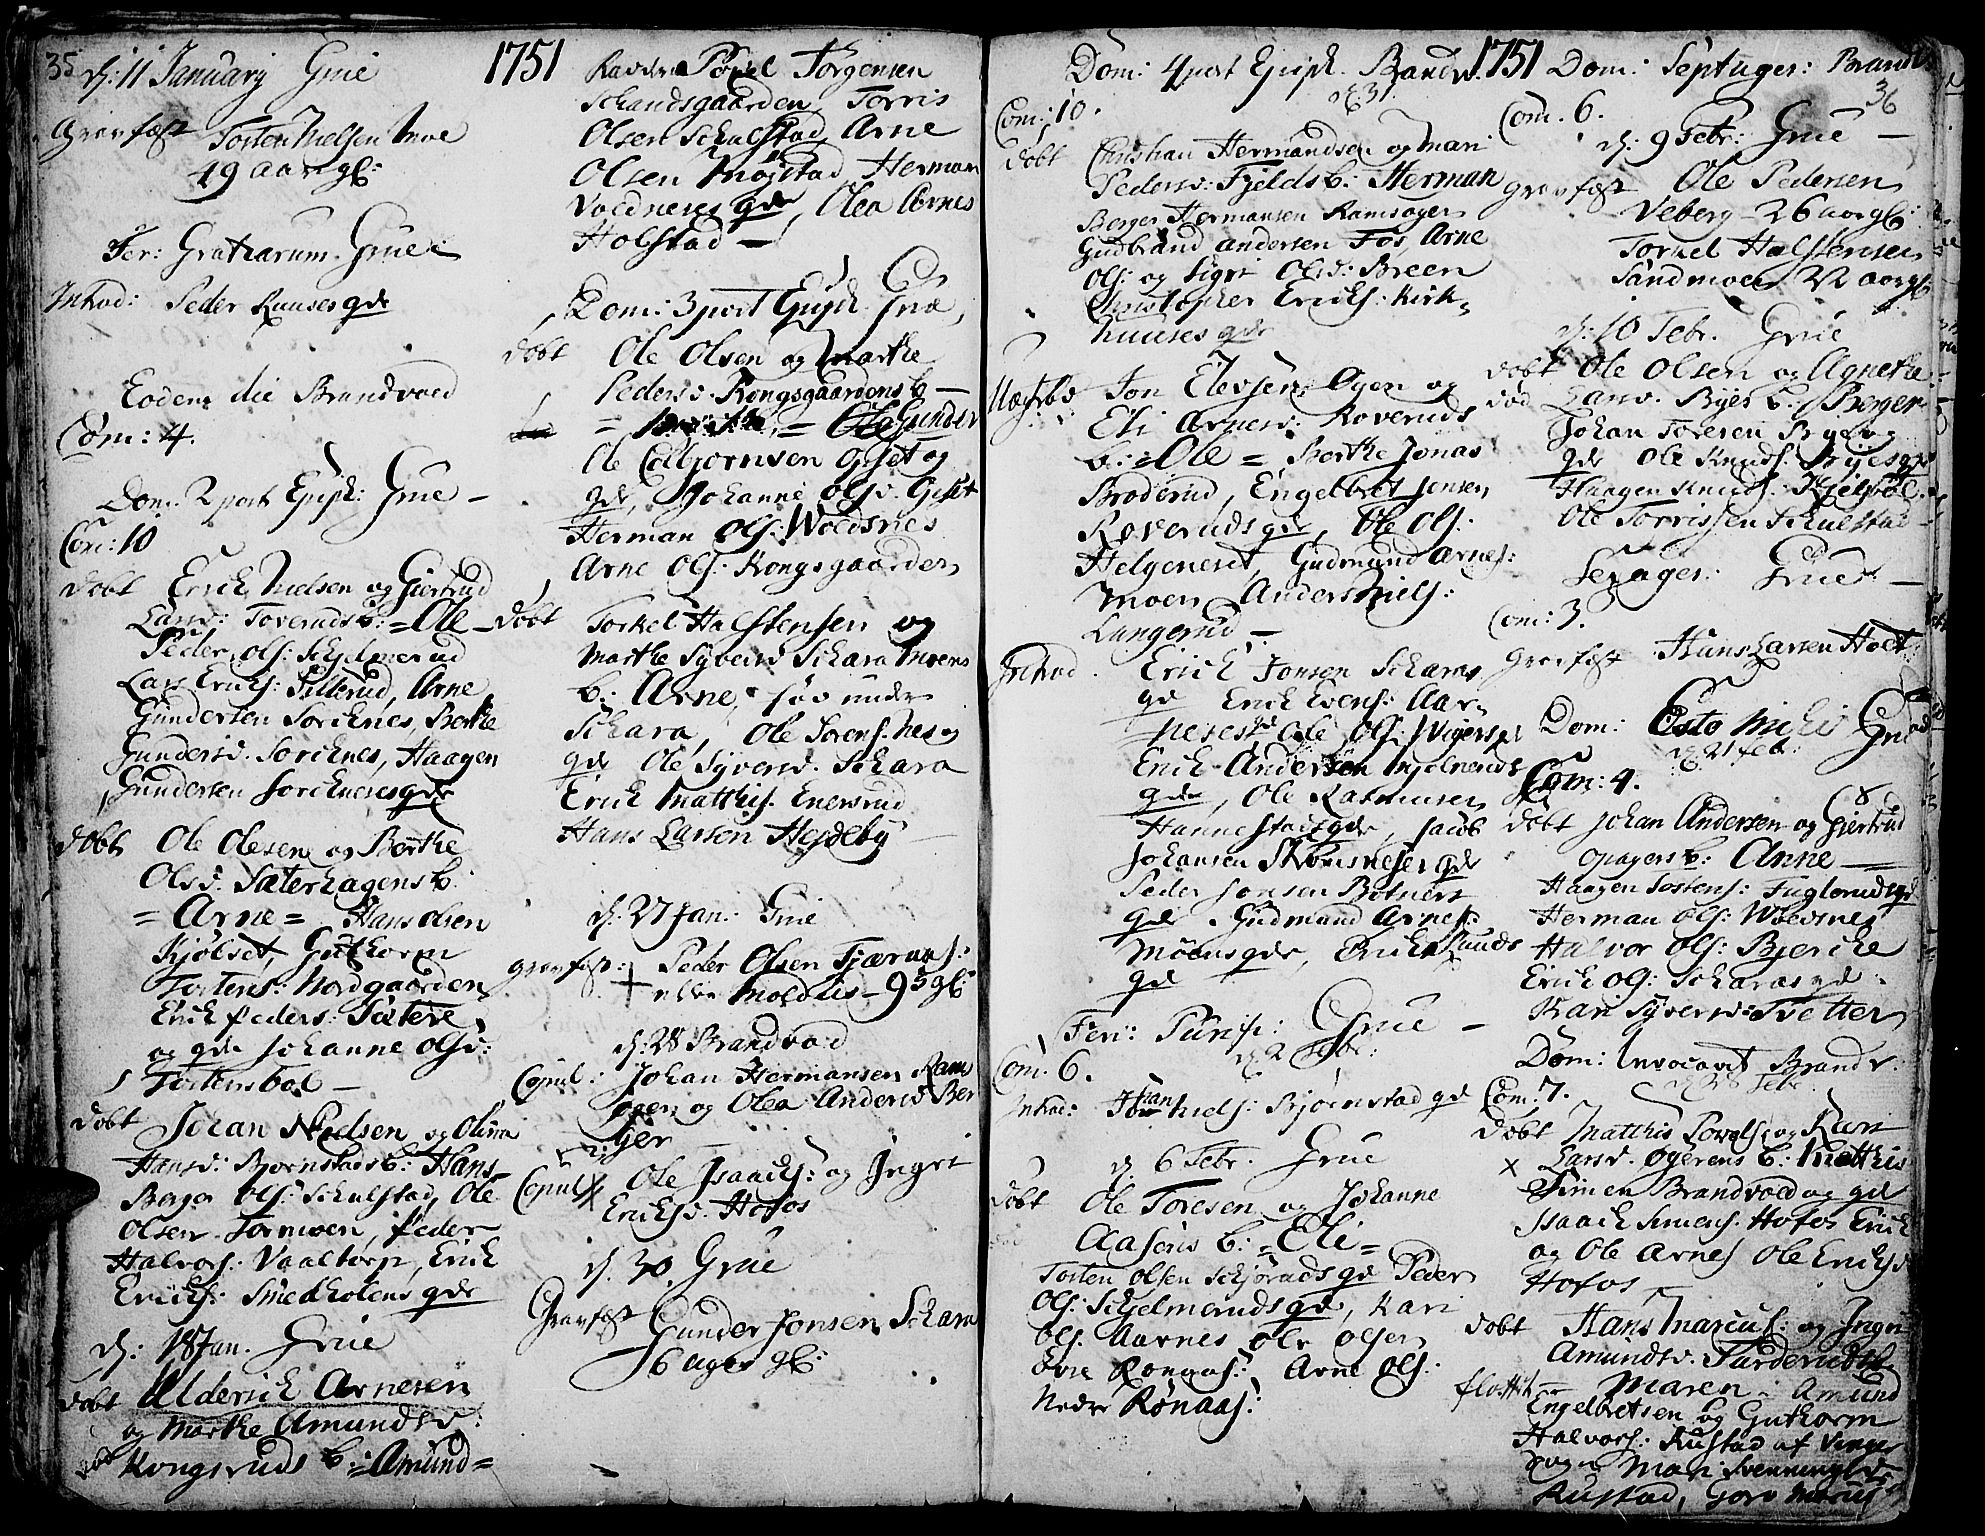 35
d: 11 January Grue
1751
Gravfæst Tosten Nielsen Moe
49 aar gl:
Fer: Gratiarum Grue
Introd: Peder Ruuses gde
Eodem die Brandvoed
Com: 4.
Dom. 2 post Epiph: Grue
Com: 10
døbt Erich Nielsen og Giertrud
Larsd: Toveruds b: = Ole
Peder Ols: Schjelmerud
Lars Erichs: Pitterud, Arne
Gundersen Sorcknes, Berthe
Gundersd. Sorcknes, Haagen
Gundersen Sorcknes gde
døbt Ole Olesen og Berthe
Olsd. Sæterhagens b:
= Arne = Hans Olsen
Kjølset, Guthorm
Tostens: Nordgaarden
Erich Peders: Sætere
og gde Johanne Olsd:
Tostensbøl
døbt Johan Nielsen og Olivia
Hansd: Bjørnstads b: Hans
Berger Ols: Schulstad, Ole
Olsen Tormoen, Peder
Halvors: Vaaltorp, Erich
Erichs: Smedholens gde
d: 18 Jan. Grue
døbt Alderich Arnesen
og Marthe Amundsd:
Kongsruds b: = Amund =
Povel Jørgensen
Schandsgaarden, Torris
Olsen Schulstad, Arne
Olsen Møystad, Herman
Voldnes gde, Olea Arnes
Holstad
Dom: 3 post Epiph. Grue
døbt Ole Olsen og Marthe
Pedersd. Kongsgaardens b
Gunder
Ole Colbjørnsen Opset og
gde, Johanne Olsd. Opset
Herman Ols: Woldsnes
Arne Ols: Kongsgaarden
døbt Torkel Halstensen og
Marthe Syversd Schara Moens
b: Arne, fød under
Schara, Ole Sørens. Nes og
gde Ole Syversd. Schara
Erich Matthis. Enersrud
Hans Larsen Hejdeby
d: 27 Jan: Grue
gravfest: Peder Olsen Tjærnes:
Moldus 95 gl:
d: 28 Brandvoed
Copul: Johan Hermansen Ram
ogen og Olea Andersd Ber
ger
Copul Ole Isaachs: og Ingri
Erichsd. Hofos
d. 30 Grue
Gravfest Gunder Jonsen Schara
76 uger gl:
Dom: 4 post Epiph. Brandv. 1751
d 31
Com: 10.
døbt Christian Hermandsen og Mari
Pedersd: Fjelds b: Herman
Berger Hermansen Ramsogen
Gudbrand Andersen Fos, Arne
Ols: og Sigri Olsd: Breen
Christopher Erichs: Kirk
huuses gde
Jon Elevsen Ogen og
Eli Arnesd: Roveruds
b: = Ole = Berthe Jonas
Broderud, Engelbret Jonsen
Roveruds gde, Ole Ols:
Helgeneset, Gudmund Arnes:
Moen Anders Niels:
Langerud
Introd. Erich Jonsen Scharas
gde Erich Evens: Aar
neset gde Ole Ols: Wigers gd
Erich Andersen Mjølneruds
gde, Ole Rasmusen
Hannestads gde, Jacob
Johansen Skromsnes gde
Peder Jonsen Botners
gde, Gudmund Arnes:
Moens gde, Erich Ruuds
gde
Feri: Purif: Grue
d 2 Febr:
Com. 6.
Introd: Johan Niels: Bjørnstad gde
d. 6 Febr. Grue
døbt Ole Toresen og Johanne
Aasens b: = Eli =
Tosten Olsen Schjøruds gde Peder
Ols: Schjelmeruds gde, Kari
Ols. Aarnes Ole Olsen
Øvre Rønaas: Arne Ols:
Nedre Rønaas:
Dom: Septuges: Brandv
36
Com. 6.
d. 9 Febr: Grue
gravfest Ole Pedersen
Veberg 26 aar gl:
Torkel Halstensen
Sandmoen 22 aar gl
d: 10 Febr. Grue
døbt Ole Olsen og Agnethe
Larsd. Byes b. Berger
Johan Toresen Bye og
gde Ole Knuds: Byes gde
Haagen Knuds: Kjelsbøl
Ole Torrissen Schulstad
Sexages: Grue
Com: 3.
Gravfest Hans Larsen Hoelt
Dom: Esto Mihi Grue
d. 21 Feb:
Com: 4.
døbt Johan Andersen og Gjertrud
Opagers b: Anne
Haagen Tostens: Fuglerud gd
Herman Ols: Woldsnes
Halvor Ols: Bjercke
Erich Ols: Scharas gd
Kari Syversd: Tvetter
Dom: Invocavit Brandv.
d 28 Febr
Com: 7.
døbt Matthis Povels: og Kari
Larsd. Ogerens b: Matthis
Simen Brandvold og gde
Isaach Simens: Hofos Erich
og Ole Arnes Ole Erichsd
Hofos
døbt Hans Marcus: og Ingri
Amundsd. Furderuds b
= Maren = Amund
Engelbretsen og Guthorm
Halvors: Rustad af Vinger
og Mari Svenningsd:
Rustad, Goro Marcus